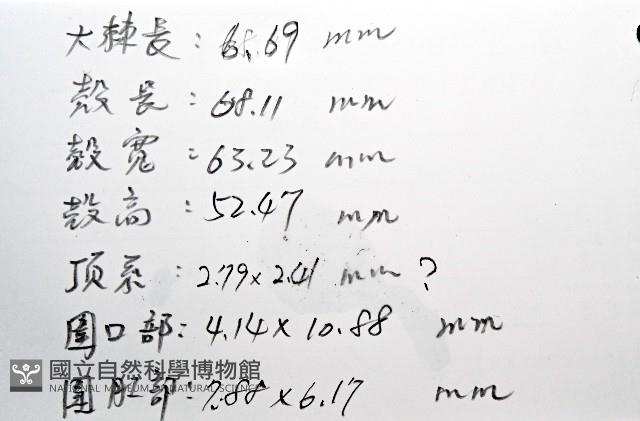 大棘長：6.69 mm
殼長：68.11 mm
殼寬：63.23 mm
殼高：52.47 mm
頂系：2.79x2.41 mm？
圍口部：4.14x10.88 mm
國立自然科學博物館
NATIONAL MUSEUM OF NATURAL SCIENCE
圍肛部：7.88x6.17 mm